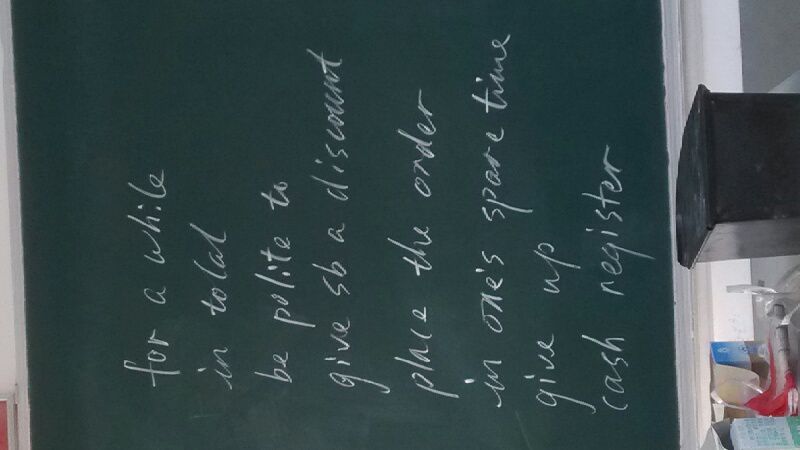 for a while
in total
be polite to
give sb a discount
place the order
in one's spare time
give up
cash register